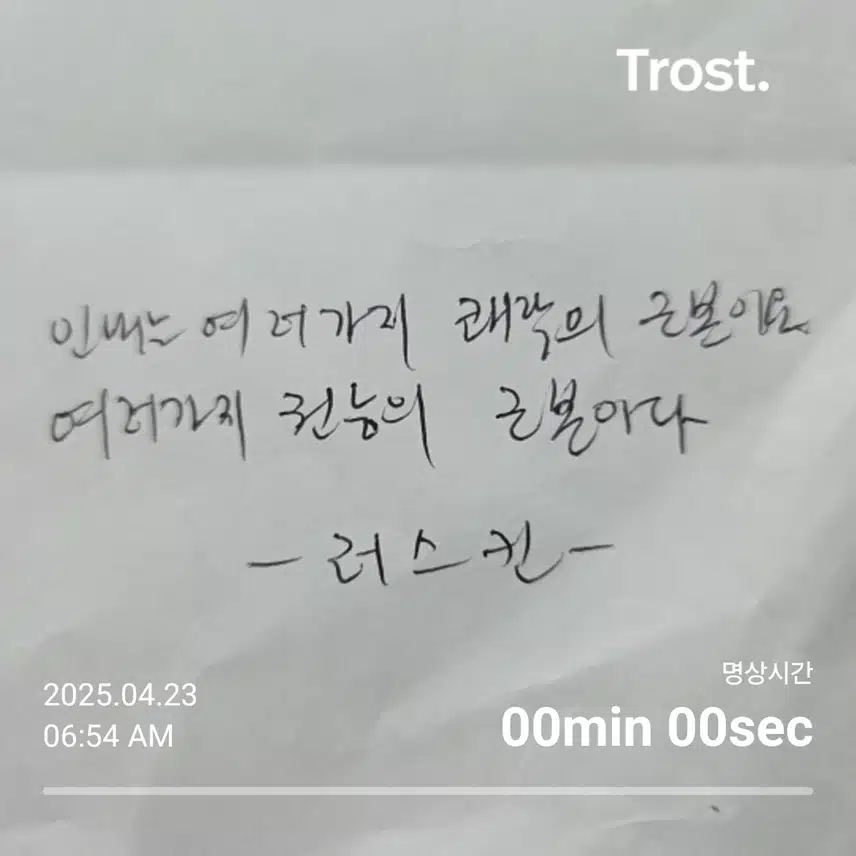 Trost.
인내는 여러가지 쾌락의 근본이요
여러가지 권능의 근본이다
- 러스킨 -
2025.04.23
06:54 AM
명상시간
00min 00sec